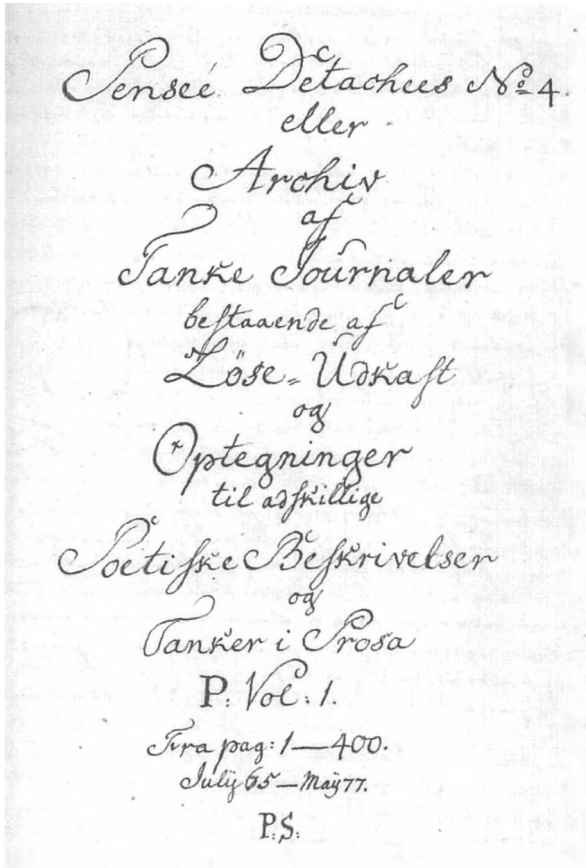 Penseé Detachees No 4.
eller
Archiv
af
Tanke Journaler
bestaaende af
Löse-Udkast
og
Optegninger
til adskillige
Poëtiske Beskrivelser
og
Tanker i Prosa
P: Vol: 1.
Fra pag: 1—400.
Julÿ 65—Maÿ 77.
P:S: